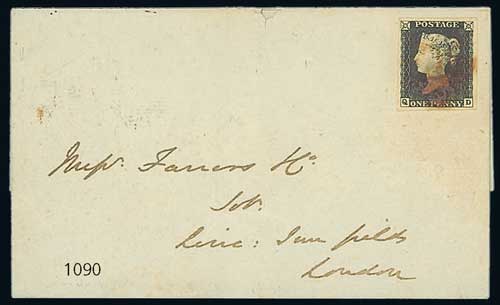 POSTAGE
Q D
ONE PENNY
Messrs. Farrers & Co.
Sols.
Linc: Inn fields
London
1090